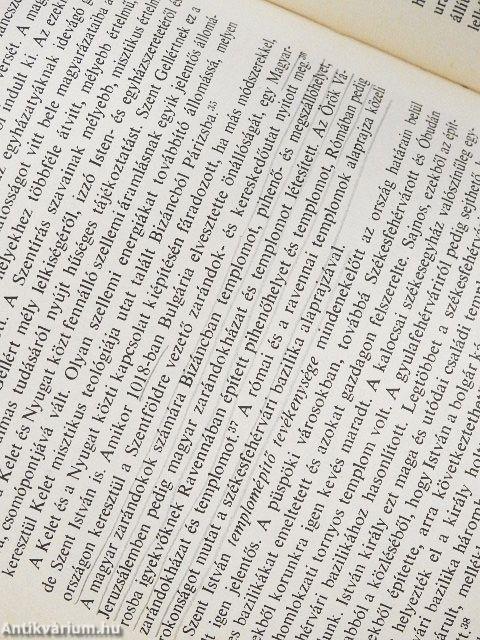 indult ki. Az
egyházatyáknak idevágó
vitt bele magyarázataiba
helyekhez többféle átvitt, mélyebb értelmű,
A Szentírás szavainak mélyebb, misztikus
mély lelkiségéről, izzó Isten- és egyházszeretetéről és
tudásáról nyújt hűséges tájékoztatást. Szent Gellértnek ez a
Kelet és Nyugat közt fennálló szellemi áramlásnak egyik jelentős állomá-
csomópontjává vált. Olyan szellemi energiákat továbbító állomássá, melyen
keresztül Kelet misztikus teológiája utat talált Bizáncból Párizsba.³⁵
A Kelet és a Nyugat közti kapcsolat kiépítésén fáradozott, ha más módszerekkel,
de Szent István is. Amikor 1018-ban Bulgária elvesztette önállóságát, egy Magyar-
országon keresztül a Szentföldre vezető zarándok- és kereskedőutat nyitott meg.³⁶
A magyar zarándokok számára Bizáncban templomot, pihenő- és messzülőhelyet,
Jeruzsálemben pedig magyar zarándokházat és templomot létesített. Az Örök Vá-
rosba igyekvőknek Ravennában épített pihenőhelyet és templomot, Rómában pedig
zarándokházat és templomot.³⁷ A római és a ravennai templomok alaprajza közeli
rokonságot mutat a székesfehérvári bazilika alaprajzával.
Szent István templomépítő tevékenysége mindenekelőtt az ország határain belül
igen jelentős. A püspöki városokban, továbbá Székesfehérvárott és Óbudán
bazilikákat emeltetett és azokat gazdagon felszerelte. Sajnos, ezekből az épít-
korunkra igen kevés maradt. A kalocsai székesegyház valószínűleg egy-
homlokzati tornyos templom volt. A gyulafehérvárról pedig sejthető,
bazilikához hasonlított. Legtöbbet a székesfehérvári
István király ezt maga és utódai családi
a közléséből, hogy István a bolgár
építette, arra következtethetünk
helyezték el a király
bazilika három
³⁸
Antikvárium.hu